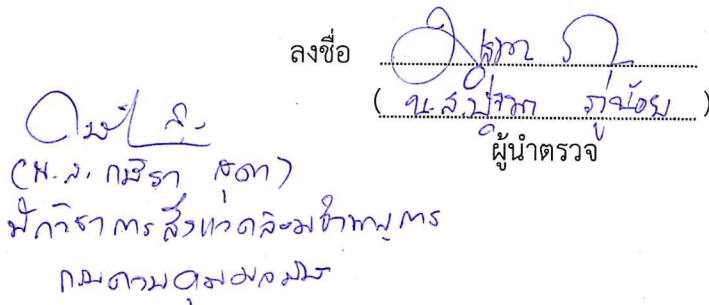 ลงชื่อ
( น.ส. ภู่น้อย )
ผู้นำตรวจ
(น.ส. กษิรา สุดา)
นักวิชาการสิ่งแวดล้อมชำนาญการ
กรมควบคุมมลพิษ